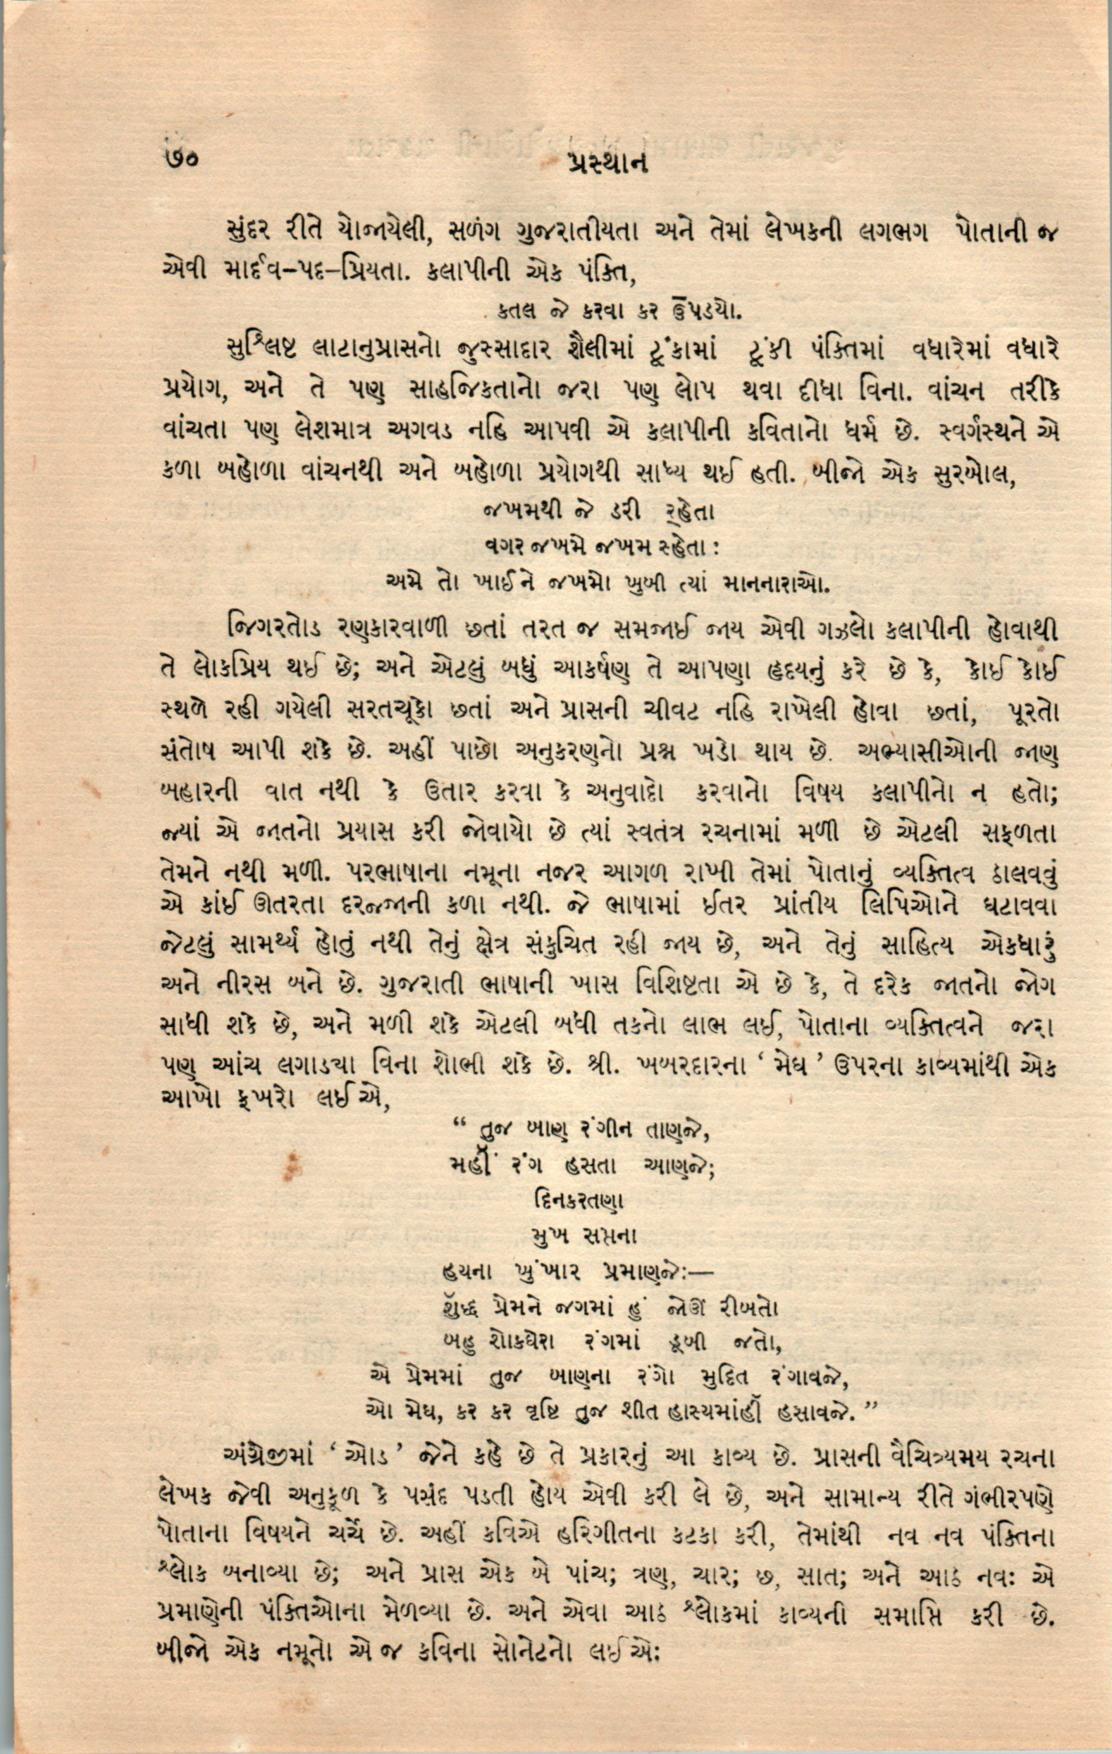 ૭૦
પ્રસ્થાન
સુંદર રીતે યોજાયેલી, સળંગ ગુજરાતીયતા અને તેમાં લેખકની લગભગ પોતાની જ
એવી માર્દવ–પદ–પ્રિયતા. કલાપીની એક પંક્તિ,
કતલ જે કરવા કર ઉપડયો.
સુશ્લિષ્ટ લાટાનુપ્રાસનો જુસ્સાદાર શૈલીમાં ટૂંકામાં ટૂંકી પંક્તિમાં વધારેમાં વધારે
પ્રયોગ, અને તે પણ સાહજિકતાનો જરા પણ લોપ થવા દીધા વિના. વાંચન તરીકે
વાંચતા પણ લેશમાત્ર અગવડ નહિ આપવી એ કલાપીની કવિતાનો ધર્મ છે. સ્વર્ગસ્થને એ
કળા બહોળા વાંચનથી અને બહોળા પ્રયોગથી સાધ્ય થઈ હતી. બીજો એક સુરબોલ,
જખમથી જે ડરી ર્‌હેતા
વગર જખમે જખમ સ્હેતા:
અમે તો ખાઈને જખમો ખુબી ત્યાં માનનારાઓ.
જિગરતોડ રણકારવાળી છતાં તરત જ સમજાઈ જાય એવી ગઝલો કલાપીની હોવાથી
તે લોકપ્રિય થઈ છે; અને એટલું બધું આકર્ષણ તે આપણા હૃદયનું કરે છે કે, કોઈ કોઈ
સ્થળે રહી ગયેલી સરતચૂકો છતાં અને પ્રાસની ચીવટ નહિ રાખેલી હોવા છતાં, પૂરતો
સંતોષ આપી શકે છે. અહીં પાછો અનુકરણનો પ્રશ્ન ખડો થાય છે. અભ્યાસીઓની જાણ
બહારની વાત નથી કે ઉતાર કરવા કે અનુવાદો કરવાનો વિષય કલાપીનો ન હતો;
જ્યાં એ જાતનો પ્રયાસ કરી જોવાયો છે ત્યાં સ્વતંત્ર રચનામાં મળી છે એટલી સફળતા
તેમને નથી મળી. પરભાષાના નમૂના નજર આગળ રાખી તેમાં પોતાનું વ્યક્તિત્વ ઠાલવવું
એ કાંઈ ઊતરતા દરજ્જાની કળા નથી. જે ભાષામાં ઈતર પ્રાંતીય લિપિઓને ઘટાવવા
જેટલું સામર્થ્ય હોતું નથી તેનું ક્ષેત્ર સંકુચિત રહી જાય છે, અને તેનું સાહિત્ય એકધારું
અને નીરસ બને છે. ગુજરાતી ભાષાની ખાસ વિશિષ્ટતા એ છે કે, તે દરેક જાતનો જોગ
સાધી શકે છે, અને મળી શકે એટલી બધી તકનો લાભ લઈ, પોતાના વ્યક્તિત્વને જરા
પણ આંચ લગાડ્યા વિના શોભી શકે છે. શ્રી. ખબરદારના ‘મેઘ’ ઉપરના કાવ્યમાંથી એક
આખો ફખરો લઈએ,
“ તુજ બાણ રંગીન તાણજે,
મહીં રંગ હસતા આણજે;
દિનકરતણા
મુખ સપ્તના
હયના ખુંખાર પ્રમાણજે:—
શુદ્ધ પ્રેમને જગમાં હું જોઊં રીબતો
બહુ શોકઘેરા રંગમાં ડૂબી જતો,
એ પ્રેમમાં તુજ બાણના રંગો મુદિત રંગાવજે,
ઓ મેઘ, કર કર વૃષ્ટિ તુજ શીત હાસ્યમાંહીં હસાવજે.”
અંગ્રેજીમાં ‘ઓડ’ જેને કહે છે તે પ્રકારનું આ કાવ્ય છે. પ્રાસની વૈચિત્ર્યમય રચના
લેખક જેવી અનુકૂળ કે પસંદ પડતી હોય એવી કરી લે છે, અને સામાન્ય રીતે ગંભીરપણે
પોતાના વિષયને ચર્ચે છે. અહીં કવિએ હરિગીતના કટકા કરી, તેમાંથી નવ નવ પંક્તિના
શ્લોક બનાવ્યા છે; અને પ્રાસ એક બે પાંચ; ત્રણ, ચાર; છ, સાત; અને આઠ નવઃ એ
પ્રમાણેની પંક્તિઓના મેળવ્યા છે. અને એવા આઠ શ્લોકમાં કાવ્યની સમાપ્તિ કરી છે.
બીજો એક નમૂનો એ જ કવિના સોનેટનો લઈએ: